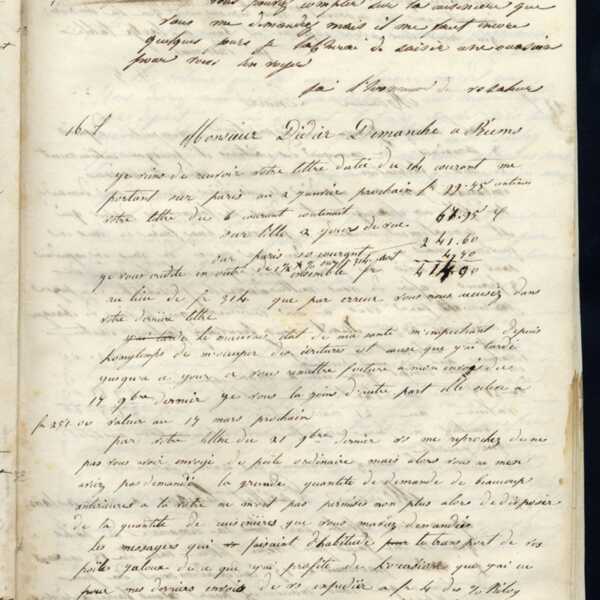 vous pouvez compter sur la cuisiniere que
vous me demandez mais il me faut encore
quelques jours je tacherai de saisir une occasion
pour vous l'envoyer
j'ai l'honneur de vous saluer
16 d
Monsieur Didier-Demanche a Reims
je viens de recevoir votre lettre datée du 14 courant me
portant sur paris au 2 janvier prochain fr 99.45
votre lettre du 6 courant contenait
sur lille 2 jours de vue 67.95
sur paris 10 courant 241.60
je vous credite en outre de 1½ % sur 314
4.90
ensemble fr 414.90
au lieu de fr 314 que par erreur vous nous accusez dans
votre derniere lettre
le mauvais état de ma santé m'empechant depuis
longtemps de m'occuper des écritures est cause que j'ai tardé
jusqu'a ce jour a vous remettre facture a mon envoi du
17 9bre dernier je vous la joins d'autre part elle eleve a
fr 251 valeur au 17 mars prochain
par votre lettre du 21 9bre dernier vs me reprochez de ne
pas vous avoir envoyé de poile ordinaire mais alors vous ne m'en
aviez pas demandé la grande quantité de demande de beaucoup
antérieures a la votre ne m'ont pas permises non plus alors de disposer
de la quantité de cuisinieres que vous m'aviez demandées
les messagers qui faisaient d'habitude le transport de vos
poile jaloux de ce que j'ai profité de l'occasion que j'ai eu
pour mes derniers envois de vs expedier a fr 4 les %